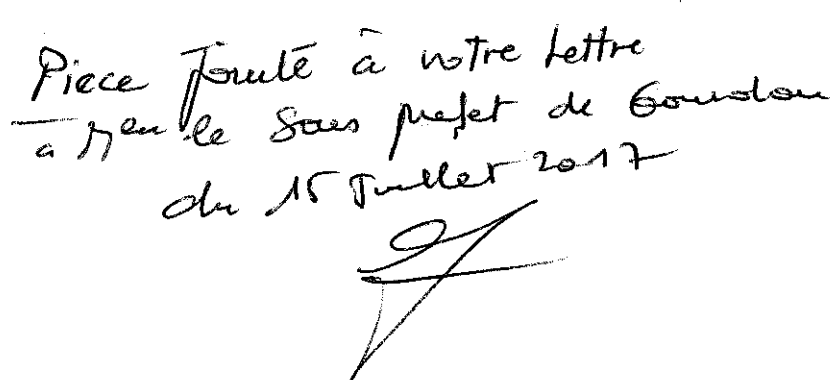 Piece Jointé à notre lettre
à Mr le Sous prefet de Gourdon
du 15 Juillet 2017